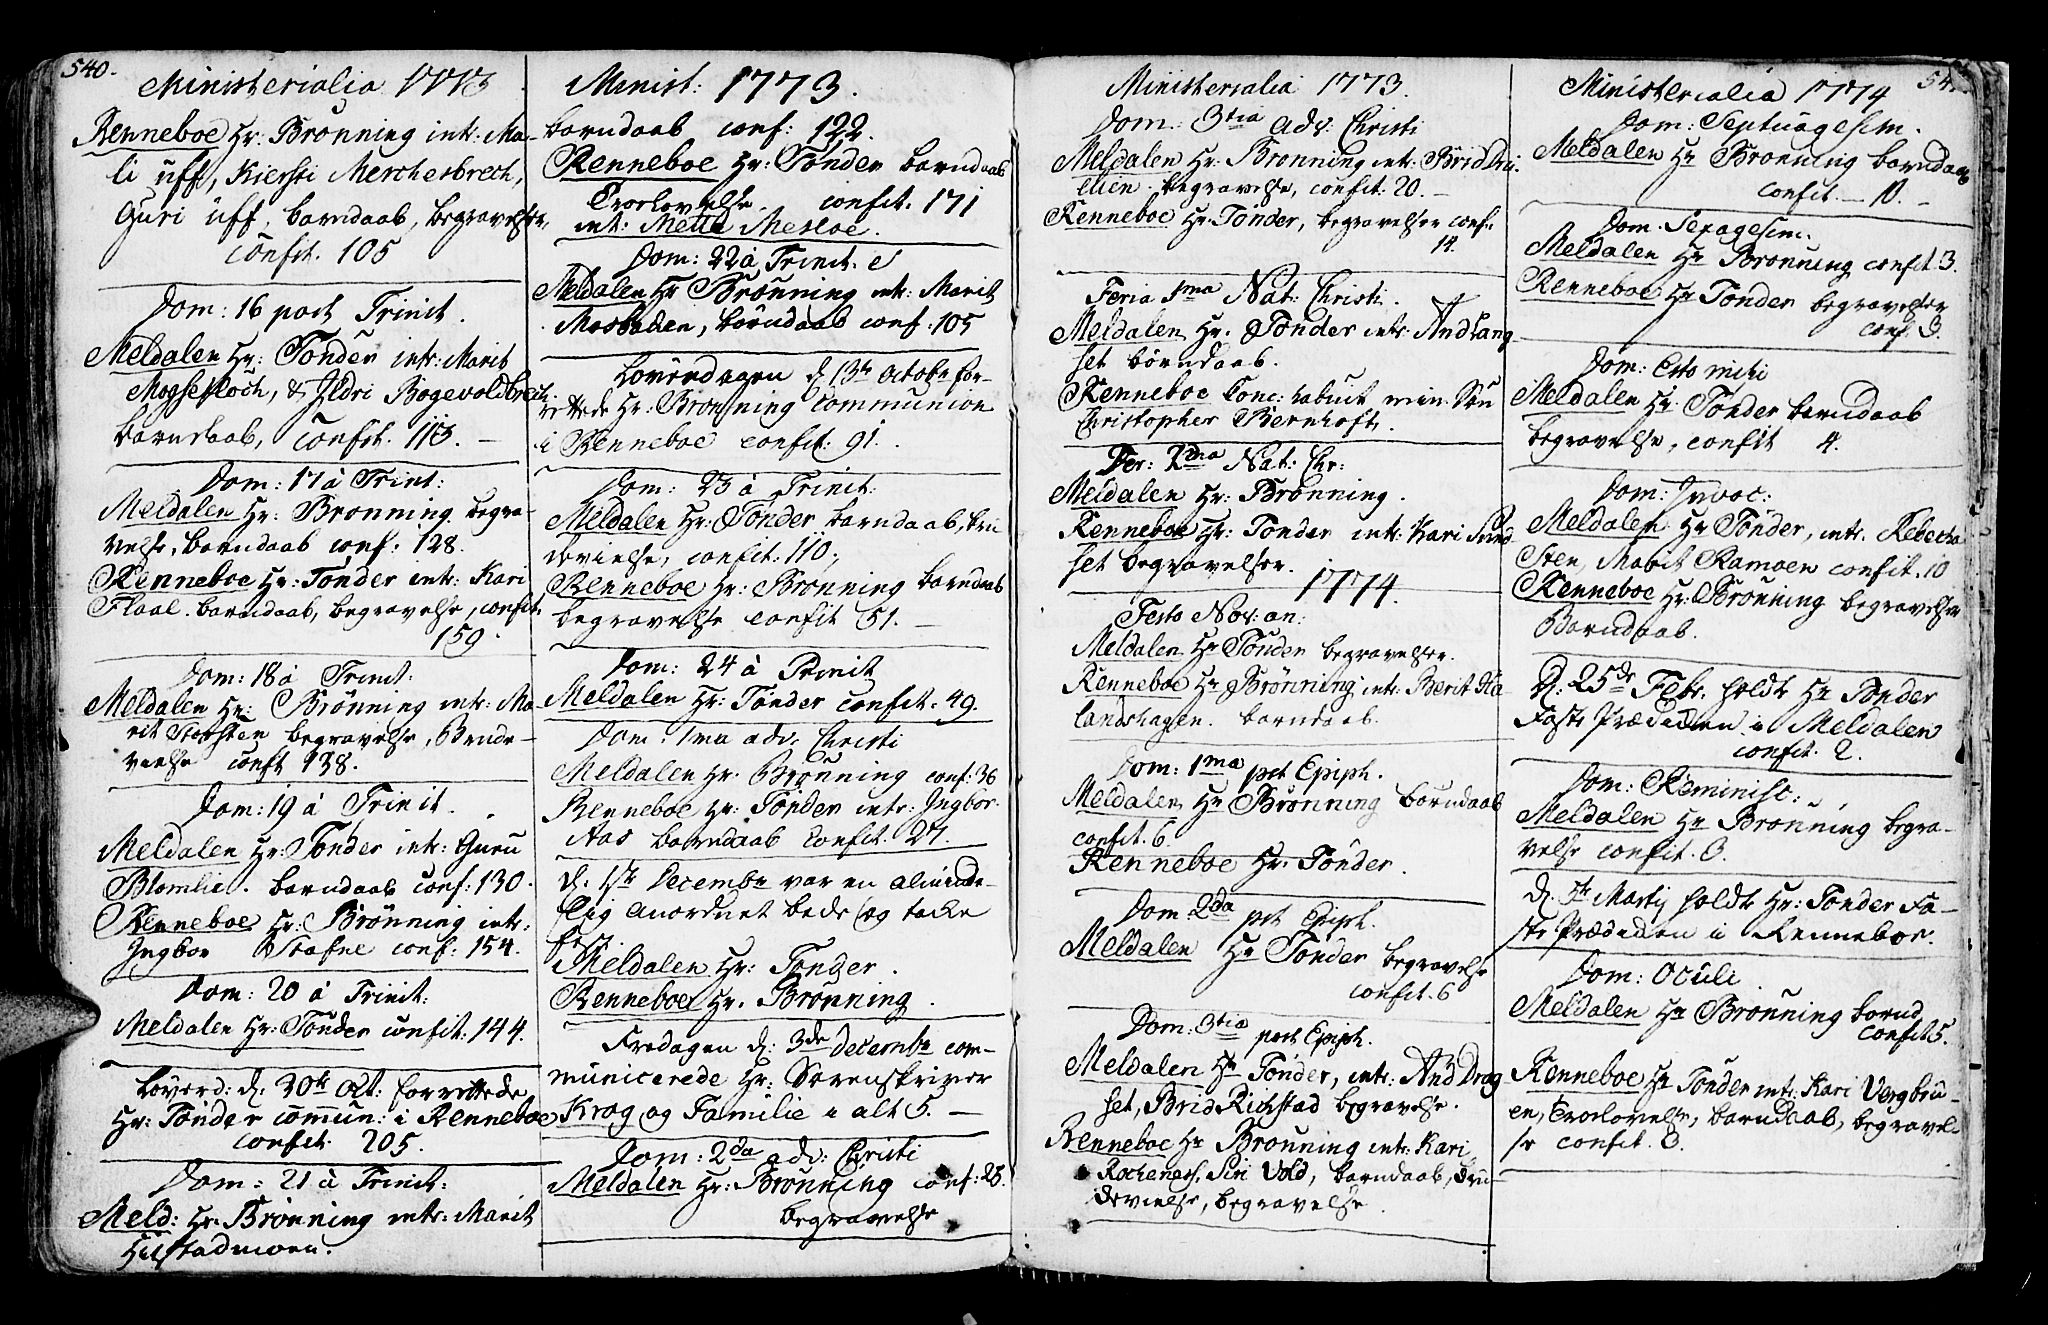 540.
Ministerialia 1773
Renneboe Hr: Brønning intr: Ma-
li Uff, Kiersti Merchesbrech,
Guri Uff, barndaab, begravelser,
confit. 105
Dom: 16 post Trinit.
Meldalen Hr: Tønder intr: Marit
& Ildri Bogevoldbrech
barndaab, Confit. 113. —
Dom: 17 à Trinit:
Meldalen Hr: Brønning begra-
velse, barndaab conf: 128.
Renneboe Hr: Tønder intr: Kari
Flaal. barndaab, begravelse, confit.
159.
Dom: 18 à Trinit:
Meldalen Hr: Brønning intr: Ma-
rit Storsten begravelse, Brude-
vielse confit 138.
Dom: 19 à Trinit.
Meldalen Hr: Tønder intr: Guru
Blomlie. barndaab conf: 130.
Renneboe Hr: Brønning intr:
Ingbor Stafne conf: 154.
Dom: 20 à Trinit:
Meldalen Hr: Tønder confit. 144.
Løverd: d: 30te Oct: forrettede
Hr: Tønder commun: i Renneboe
confit. 205.
Dom: 21 à Trinit:
Meld: Hr: Brønning intr: Marit
Hilstadmoen.
Minist: 1773.
barndaab conf: 122.
Renneboe Hr: Tønder barndaab
Troelovelse. confit. 171
int: Mette Mesloe.
Dom: 22 à Trinit.
Meldalen Hr Brønning intr: Marit
Mosbaden, børndaab conf: 105
Løverdagen d 13te Octobr for-
rettede Hr: Brønning Communion
i Renneboe confit: 91.
Dom: 23 à Trinit:
Meldalen Hr: Tønder barndaab, bru
devielse, confit: 110;
Renneboe Hr: Brønning barndaab
begravelse confit 51. —
Dom: 24 à Trinit
Meldalen Hr: Tønder confit. 49.
Dom: 1ma adv. Christi
Meldalen Hr. Brønning conf: 36
Renneboe Hr: Tønder intr: Ingbor
Aas barndaab Confit. 27.
d. 1ste Decembr var en alminde-
lig anordnet bede og takke
fest.
Meldalen Hr: Tønder.
Renneboe Hr. Brønning.
Fredagen d: 3de Decembr com-
municerede Hr: Sorenskriver
Krog og Familie i alt 5. —
Dom: 2da adv: Christi
Meldalen Hr: Brønning conf: 28.
begravelse
Ministerialia 1773.
Dom: 3tia adv: Christi
Meldalen Hr: Brønning intr: Brid Dri-
elien begravelse, confit. 20. —
Renneboe Hr Tønder, begravelser conf:
14.
Feria 1ma Nat: Christi.
Meldalen Hr. Tønder intr: And Lang-
set børndaab.
Renneboe Conc: habuit min Søn
Christopher Bernhoft.
Fer: 2da Nat: Chr:
Meldalen Hr: Brønning.
Renneboe Hr: Tønder intr: Kari
set begravelser.
1774.
Festo Nov: an:
Meldalen Hr Tønder begravelser.
Renneboe Hr Brønning intr: Berit Ha-
landshagen. barndaab.
Dom: 1ma pst Epiph.
Meldalen Hr Brønning barndaab
confit. 6.
Renneboe Hr: Tønder.
Dom 2da pst Epiph.
Meldalen Hr Tønder begravelse
confit. 6
Dom: 3tia post Epiph.
Meldalen Hr Tønder, intr: And Drog
set, Brid Richstad begravelse.
Renneboe Hr Brønning intr: Kari
Siri Vold, barndaab, bru-
devielse, begravelse.
54
Ministerialia 1774
Dom: Septuagesim.
Meldalen Hr Brønning barndaab
confit. — 10. —
Dom. Sexagesim.
Meldalen Hr Brønning confit 3.
Renneboe Hr Tønder begravelser
conf. 3.
Dom: Esto mihi
Meldalen Hr Tønder barndaab
begravelse, confit 4.
Dom: Invoc:
Meldalen Hr Tønder, intr. Rebecha
Sten, Marit Ramoen confit. 10
Renneboe Hr: Brønning begravelser
Barndaab.
D: 25de Febr. holdt Hr Tønder
Faste Prædiken i Meldalen
confit. 2.
Dom: Reminisc:
Meldalen Hr Brønning begra-
velse confit. 3.
d. Martij holdt Hr: Tønder Fa-
ste Prædiken i Renneboe.
Dom: Oculi
Meldalen Hr Brønning barnd
confit 5.
Renneboe Hr Tønder intr: Kari Vergbru-
en, Troelovelse, barndaab, begravel-
se confit. 3.